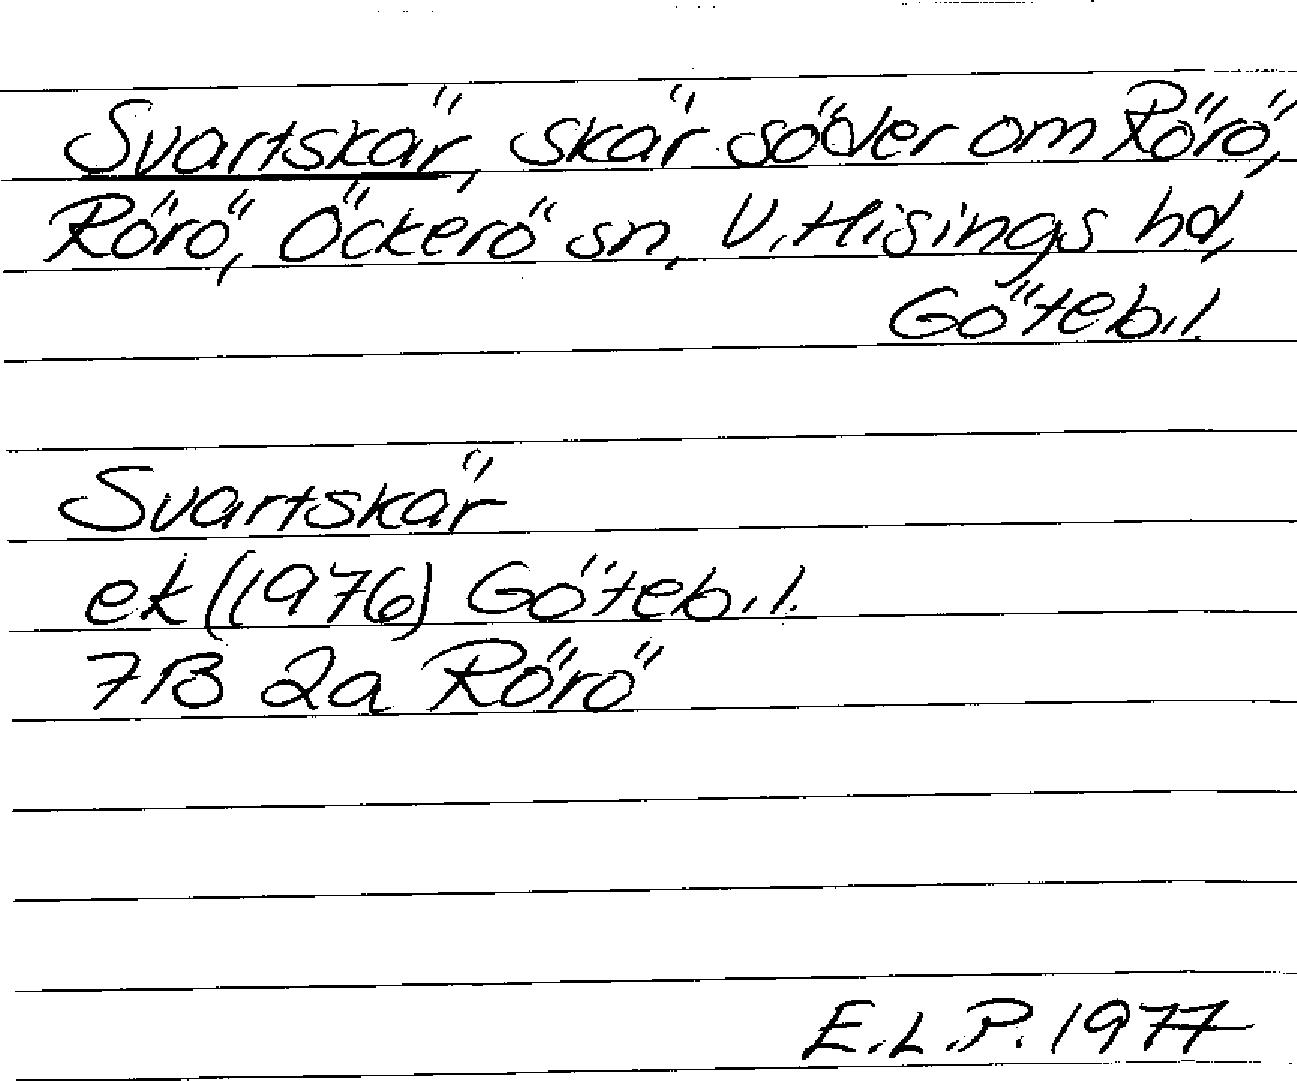 Svartskär, skär söder om Rörö,
Rörö, Öckerö sn, V. Hisings hd,
Göteb.l.
Svartskär
ek (1976) Göteb.l.
7B 2a Rörö
E.L.P. 1977